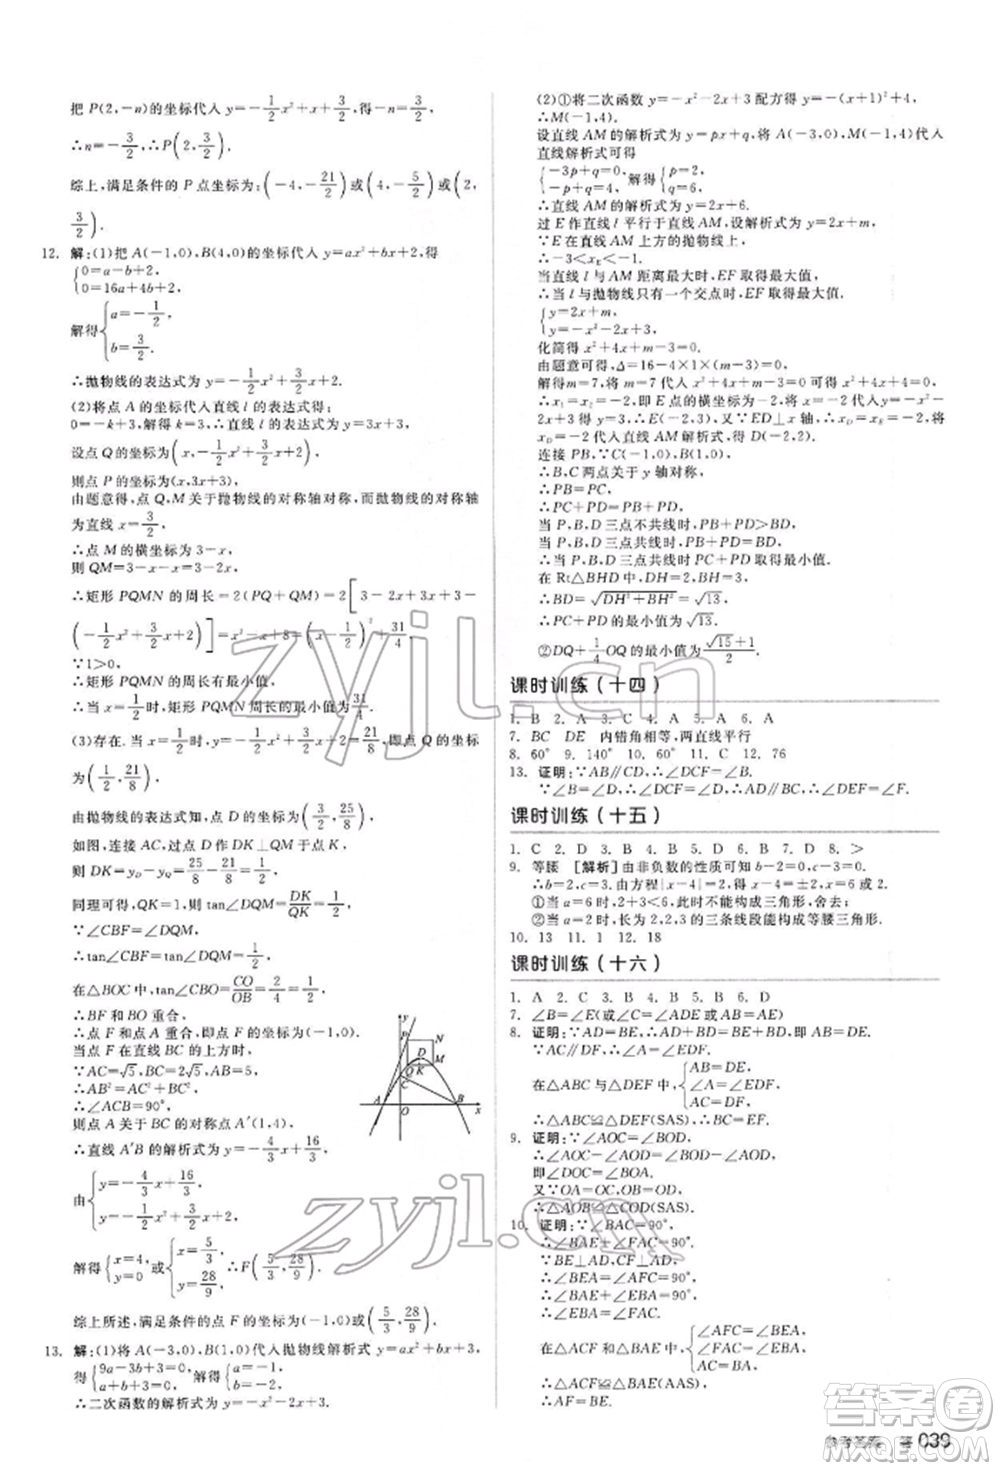 把 P(2,-n)的坐标代入 y=-1/2x²+x+3/2,得-n=3/2,
∴n=-3/2,∴P(2,3/2).
综上,满足条件的 P 点坐标为:(-4,-21/2)或(4,-5/2)或(2,
3/2).
12. 解:(1)把 A(-1,0),B(4,0)的坐标代入 y=ax²+bx+2,得
{0=a-b+2,
0=16a+4b+2,
解得{a=-1/2,
b=3/2.
∴抛物线的表达式为 y=-1/2x²+3/2x+2.
(2)将点 A 的坐标代入直线 l 的表达式得:
0=-k+3,解得 k=3,∴直线 l 的表达式为 y=3x+3,
设点 Q 的坐标为(x,-1/2x²+3/2x+2),
则点 P 的坐标为(x,3x+3),
由题意得,点 Q,M 关于抛物线的对称轴对称,而抛物线的对称轴
为直线 x=3/2,
∴点 M 的横坐标为 3-x,
则 QM=3-x-x=3-2x,
∴矩形 PQMN 的周长=2(PQ+QM)=2[3-2x+3x+3-
(-1/2x²+3/2x+2)]=x²-x+8=(x-1/2)²+31/4,
∵1>0,
∴矩形 PQMN 的周长有最小值,
∴当 x=1/2时,矩形 PQMN 周长的最小值为31/4.
(3)存在.当 x=1/2时,y=-1/2x²+3/2x+2=21/8,即点 Q 的坐标
为(1/2,21/8),
由抛物线的表达式知,点 D 的坐标为(3/2,25/8),
如图,连接 AC,过点 D 作 DK⊥QM 于点 K,
则 DK=yD-yQ=25/8-21/8=1/2,
同理可得,QK=1,则 tan∠DQM=DK/QK=1/2,
∵∠CBF=∠DQM,
∴tan∠CBF=tan∠DQM=1/2,
在△BOC 中,tan∠CBO=CO/OB=2/4=1/2,
∴BF 和 BO 重合,
∴点 F 和点 A 重合,即点 F 的坐标为(-1,0),
当点 F 在直线 BC 的上方时,
∵AC=√5,BC=2√5,AB=5,
∴AB²=AC²+BC²,
∴∠ACB=90°,
则点 A 关于 BC 的对称点 A′(1,4),
∴直线 A′B 的解析式为 y=-4/3x+16/3,
由{y=-4/3x+16/3,
y=-1/2x²+3/2x+2,
解得{x=4,
y=0
或{x=5/3,
y=28/9,
∴F(5/3,28/9),
综上所述,满足条件的点 F 的坐标为(-1,0)或(5/3,28/9).
13. 解:(1)将 A(-3,0),B(1,0)代入抛物线解析式 y=ax²+bx+3,
得{9a-3b+3=0,
a+b+3=0,
解得{a=-1,
b=-2,
∴二次函数的解析式为 y=-x²-2x+3.
y
P
N
D
Q
M
C
A
O
B
x
(2)①将二次函数 y=-x²-2x+3 配方得 y=-(x+1)²+4,
∴M(-1,4).
设直线 AM 的解析式为 y=px+q,将 A(-3,0),M(-1,4)代入
直线解析式可得
{-3p+q=0,
-p+q=4,
解得{p=2,
q=6.
∴直线 AM 的解析式为 y=2x+6.
过 E 作直线 l 平行于直线 AM,设解析式为 y=2x+m,
∵E 在直线 AM 上方的抛物线上,
∴-3<xE<-1.
当直线 l 与 AM 距离最大时,EF 取得最大值,
∴当 l 与抛物线只有一个交点时,EF 取得最大值.
{y=2x+m,
y=-x²-2x+3,
化简得 x²+4x+m-3=0.
由题意可得,Δ=16-4×1×(m-3)=0,
解得m=7,将 m=7 代入 x²+4x+m-3=0 得 x²+4x+4=0,
∴x₁=x₂=-2,即 E 点的横坐标为-2,将 x=-2 代入 y=-x²-
2x+3 得 y=3,∴E(-2,3),又∵ED⊥x 轴,∴xD=xE=-2,将
xD=-2 代入直线 AM 解析式,得 D(-2,2).
连接 PB,
∴B,C 两点关于 y 轴对称,
∴PB=PC,
∴PC+PD=PB+PD,
当 P,B,D 三点不共线时,PB+PD>BD,
∴当 P,B,D 三点共线时 PC+PD 取得最小值.
在 Rt△BHD 中,DH=2,BH=3,
∴BD=√(DH²+BH²)=√13,
∴PC+PD 的最小值为√13.
②DQ+1/4OQ 的最小值为(√15+1)/2.
课时训练(十四)
1. B 2. A 3. C 4. A 5. A 6. A
7. BC DE 内错角相等,两直线平行
8. 60° 9. 140° 10. 60° 11. C 12. 76
13. 证明:∵AB∥CD,∴∠DCF=∠B.
∵∠B=∠D,∴∠DCF=∠D.∴AD∥BC.∴∠DEF=∠F.
课时训练(十五)
1. C 2. D 3. B 4. B 5. B 6. D 7. D 8. >
9. 等腰 [解析]由非负数的性质可知 b-2=0,c-3=0,
∴b=2,c=3,由方程|x-4|=2,得 x=6 或 2,
①当 a=6 时,2+3<6,此时不能构成三角形,舍去;
②当 a=2时,长为 2,2,3 的三条线段能构成等腰三角形.
10. 13 11. 1 12. 18
课时训练(十六)
1. A 2. C 3. B 4. B 5. B 6. D
7. ∠B=∠E(或∠C=∠ADE 或 AB=AE)
8. 证明:∵AD=BE,∴AD+BD=BE+BD,即AB=DE.
∵AC∥DF,∴∠A=∠EDF.
在△ABC 与△DEF 中,{AB=DE,
∠A=∠EDF,
AC=DF,
∴△ABC≌△DEF(SAS),∴BC=EF.
9. 证明:∵∠AOC=∠BOD,
∴∠AOC-∠AOD=∠BOD-∠AOD,
即∠COD=∠BOA.
又∵OA=OC,OB=OD,
∴△AOB≌△COD(SAS).
10. 证明:∵∠BAC=90°,
∴∠BAE+∠FAC=90°,
∵BE⊥AD,CF⊥AD,
∴∠BEA=∠AFC=90°,
∴∠BAE+∠EBA=90°,
∴∠EBA=∠FAC.
在△ACF 和△BAE 中,{∠AFC=∠BEA,
∠FAC=∠EBA,
AC=BA,
∴△ACF≌△BAE(AAS),
∴AF=BE.
参考答案 答 039
zyjl.cn
zyjl.cn
答案卷
MXQE.COM